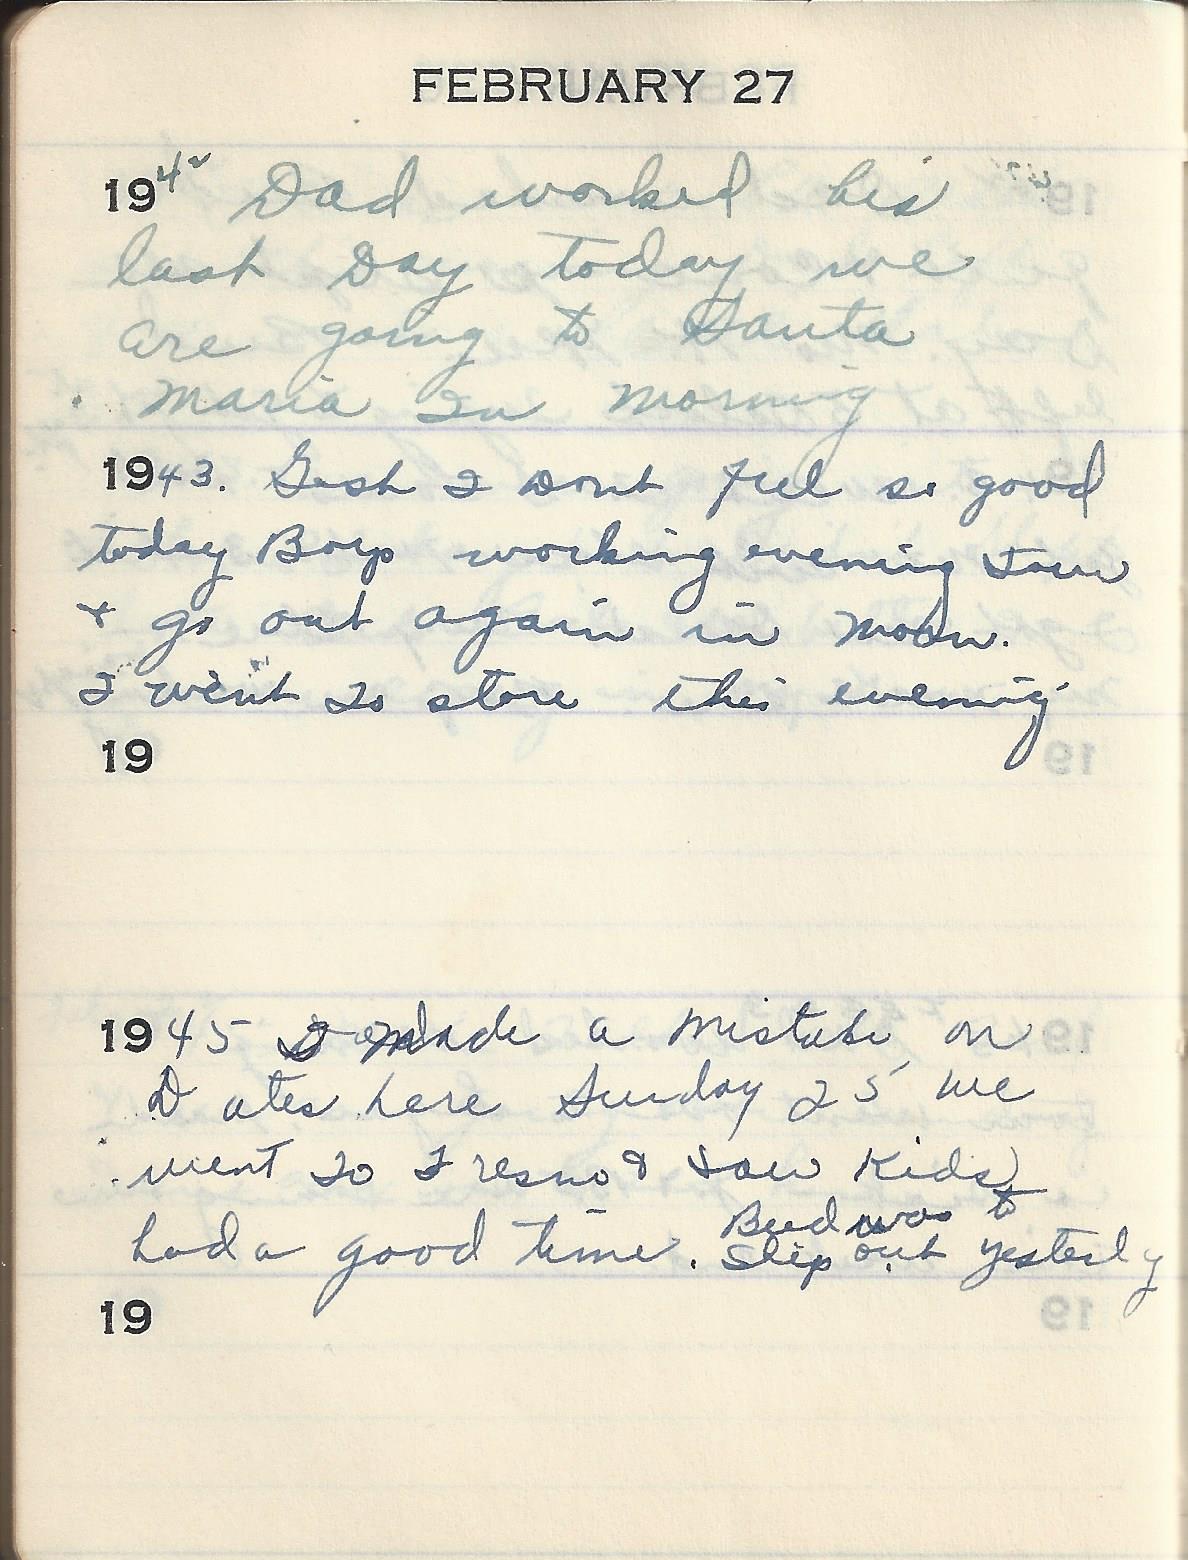 FEBRUARY 27
1942 Dad worked his
last Day today we
are going to Santa
Maria In morning
1943. Gosh I Dont feel so good
today Boys working evening
& go out again in morn.
I went to store this evening
19
1945 I made a mistake on
Dates here Sunday 25 we
went to Fresno & saw Kids,
had a good time. Bud was to
Ship out yesterdy
19